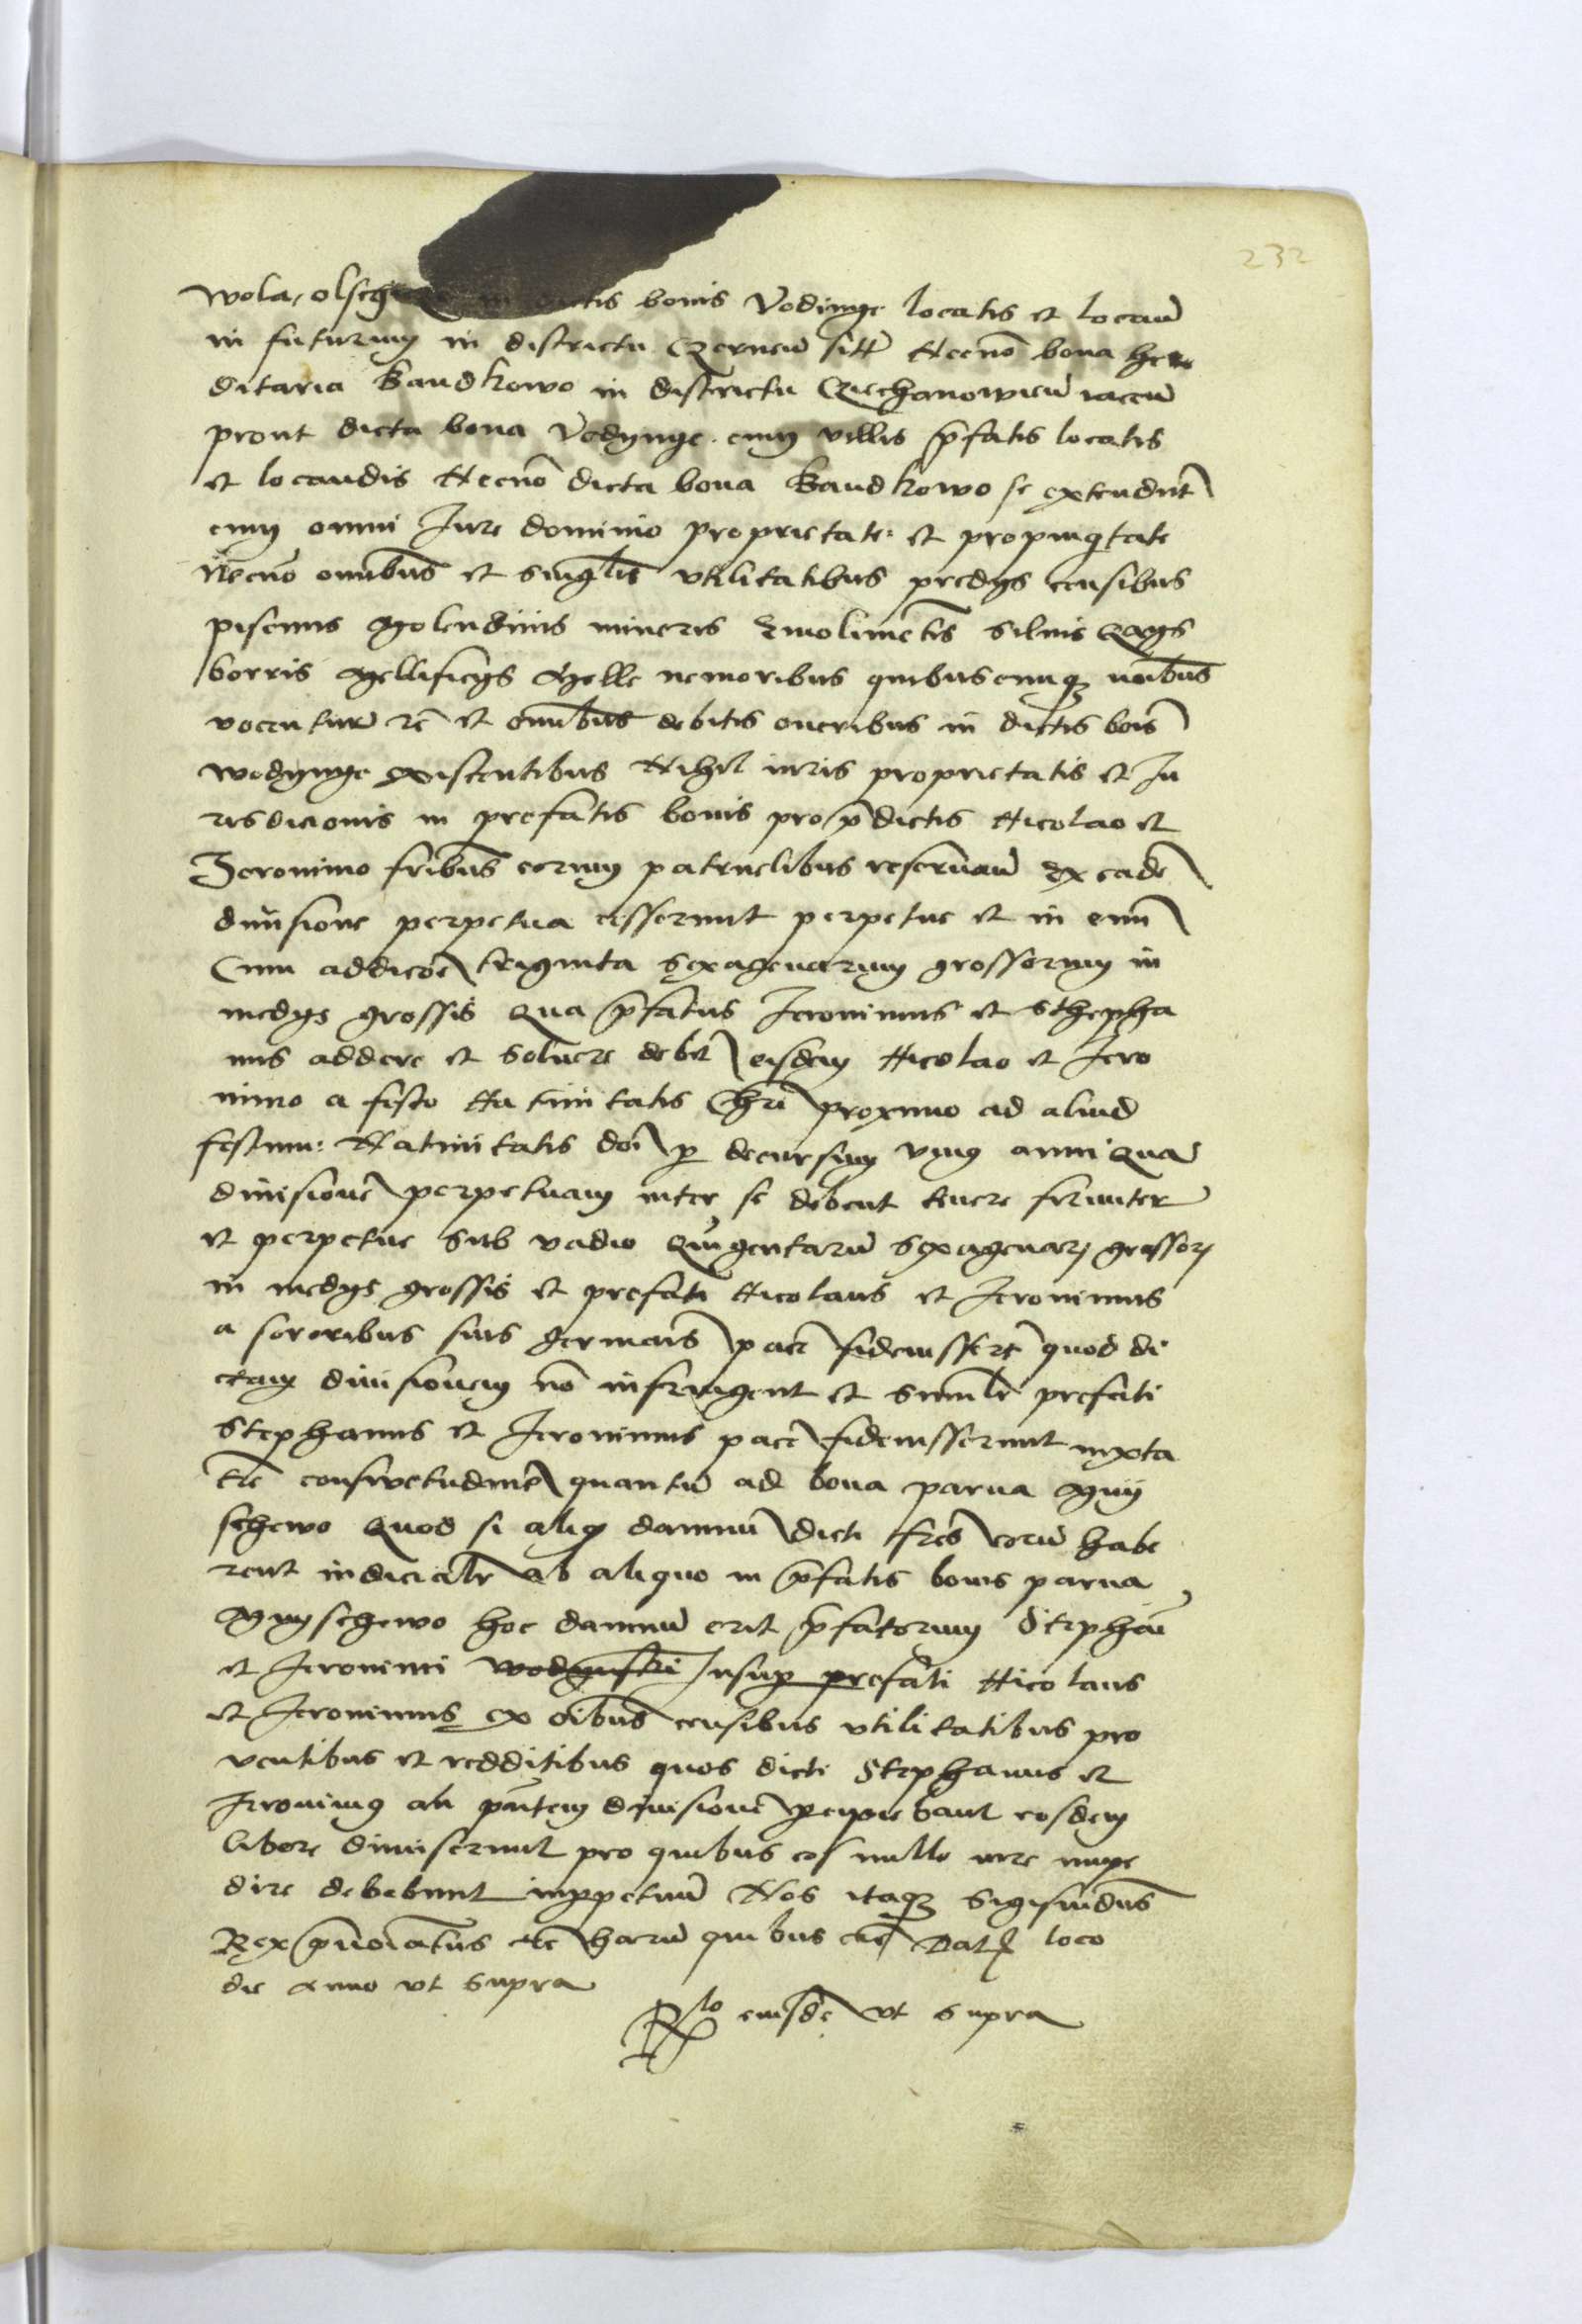 232
wola, olsch in dictis bonis Vodinge locatis et locan̄
in futurum in districtu Czernen̄ sitt̄ Necnō bona here
ditaria Bandkowo in districtu Cziechanowien̄ iacen̄
prout dicta bona Vodynge cum villis p̄fatis locatis
et locandis Necnō dicta bona Bandkowo se extendūt
cum omni Jure dominio proprietate et propinqtate
Necnō omībus et singlis vtilitatibus predys censibus
piscinis Molendinis mineris Emolimētis siluis
borris Mellificys Melle nemoribus quibuscumq noībus
vocentur et omībus debitis oneribus in dictis bois
wodynge existentibus Nihil iuris proprietatis et Ju
risdicionis in prefatis bonis pro p̄dictis Nicolao et
Jeronimo fribus eorum patruelibus reseruan̄ Ex eadē
diuisione perpetua cesserunt perpetue et in euū
Cum addicōe triginta sexagenarum grossorum in
medys grossis Qua p̄fatus Jeronimus et Sthepha
nus addere et soluere debēt eisdem Nicolao et Jero
nimo a festo Natiuitatis Chri proximo ad aliud
festum Natiuitatis doī p decursum vnius anni Quā
diuisionē perpetuam inter se debent tenere firmiter
et perpetue sub vadio Quīgentarū sexagenar grossor
in medys grossis et prefati Nicolaus et Jeronimus
a sororibus suis germais pacē fideiusserūt quod di
ctam diuisionem nō infringent et similr prefati
Stephanus et Jeronimus pacē fideiusserunt iuxta
tre consuetudinē quantū ad bona parua Mny
schewo Quod si aliq damnū dicti fres eorū habe
rent iudicialr ab aliquo in p̄fatis bonis parua
Mnyschewo hoc damnū erit p̄fatorum Stephāi
et Jeronimi wodynski Insup prefati Nicolaus
et Jeronimus ex oībus censibus vtilitatibus pro
uentibus et redditibus quos dicti Stephanus et
Jeronimus an pn̄tem diuisionē pcipiebant eosdem
libere dimiserunt pro quibus eos nullo iure impe
dire debebunt inppetuū Nos itaq Sigismūdus
Rex p̄noīatus etc harū quibus etc Dat loco
die Anno vt supra
Rlo eiusdē vt supra